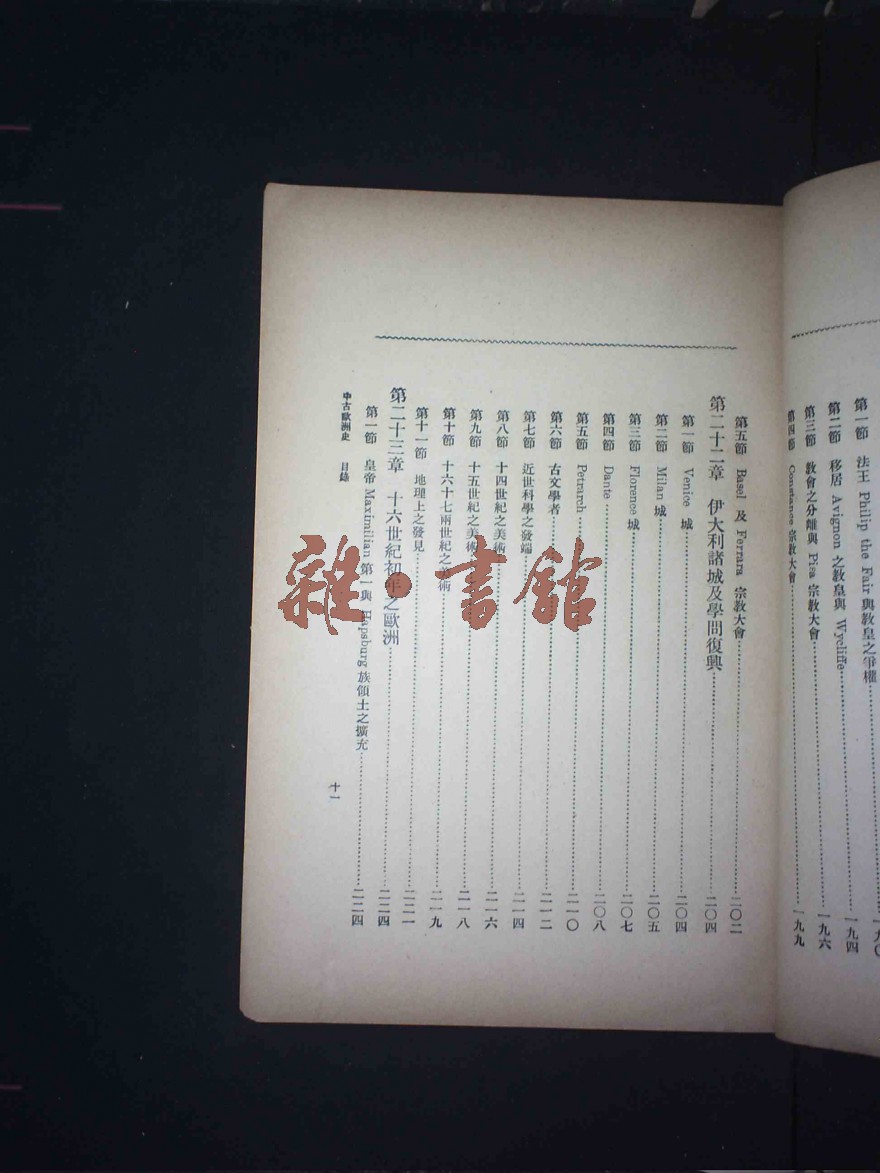 第一節 法王 Philip the Fair 與教皇之爭權 一九〇
第二節 移居 Avignon 之教皇與 Wycliffe 一九四
第三節 教會之分離與 Pisa 宗教大會 一九六
第四節 Constance 宗教大會 一九九
第五節 Basel 及 Ferrara 宗教大會 二〇二
第二十二章 伊大利諸城及學問復興 二〇四
第一節 Venice 城 二〇四
第二節 Milan 城 二〇五
第三節 Florence 城 二〇七
第四節 Dante 二〇八
第五節 Petrarch 二一〇
第六節 古文學者 二一二
第七節 近世科學之發端 二一四
第八節 十四世紀之美術 二一六
第九節 十五世紀之美術 二一八
第十節 十六十七兩世紀之美術 二一九
第十一節 地理上之發見 二二一
第二十三章 十六世紀初年之歐洲 二二四
第一節 皇帝 Maximilian 第一與 Hapsburg 族領土之擴充 二二四
中古歐洲史 目錄
十一
雜·書館